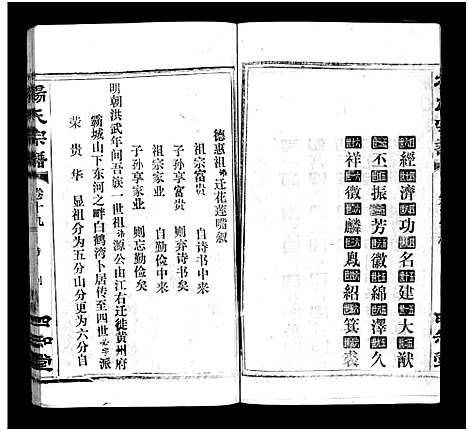 經濟功名建大猷
丕振芳徽綿澤久
祥徵麟鳳紹箕裘
德惠祖迁花莲嘴叙
祖宗富贵 自诗书中来
子孙享富貴 则弃诗书矣
祖宗家业 自勤俭中来
子孙享家业 则忘勤俭矣
明朝洪武年间吾族一世祖源公由江右迁徙黄州府
霸城山下东河之畔白鹤湾卜居傳至四世必字派
荣贵华 显祖分为五分山分更为六分自
楊氏宗譜 卷首九
四知堂
四知堂